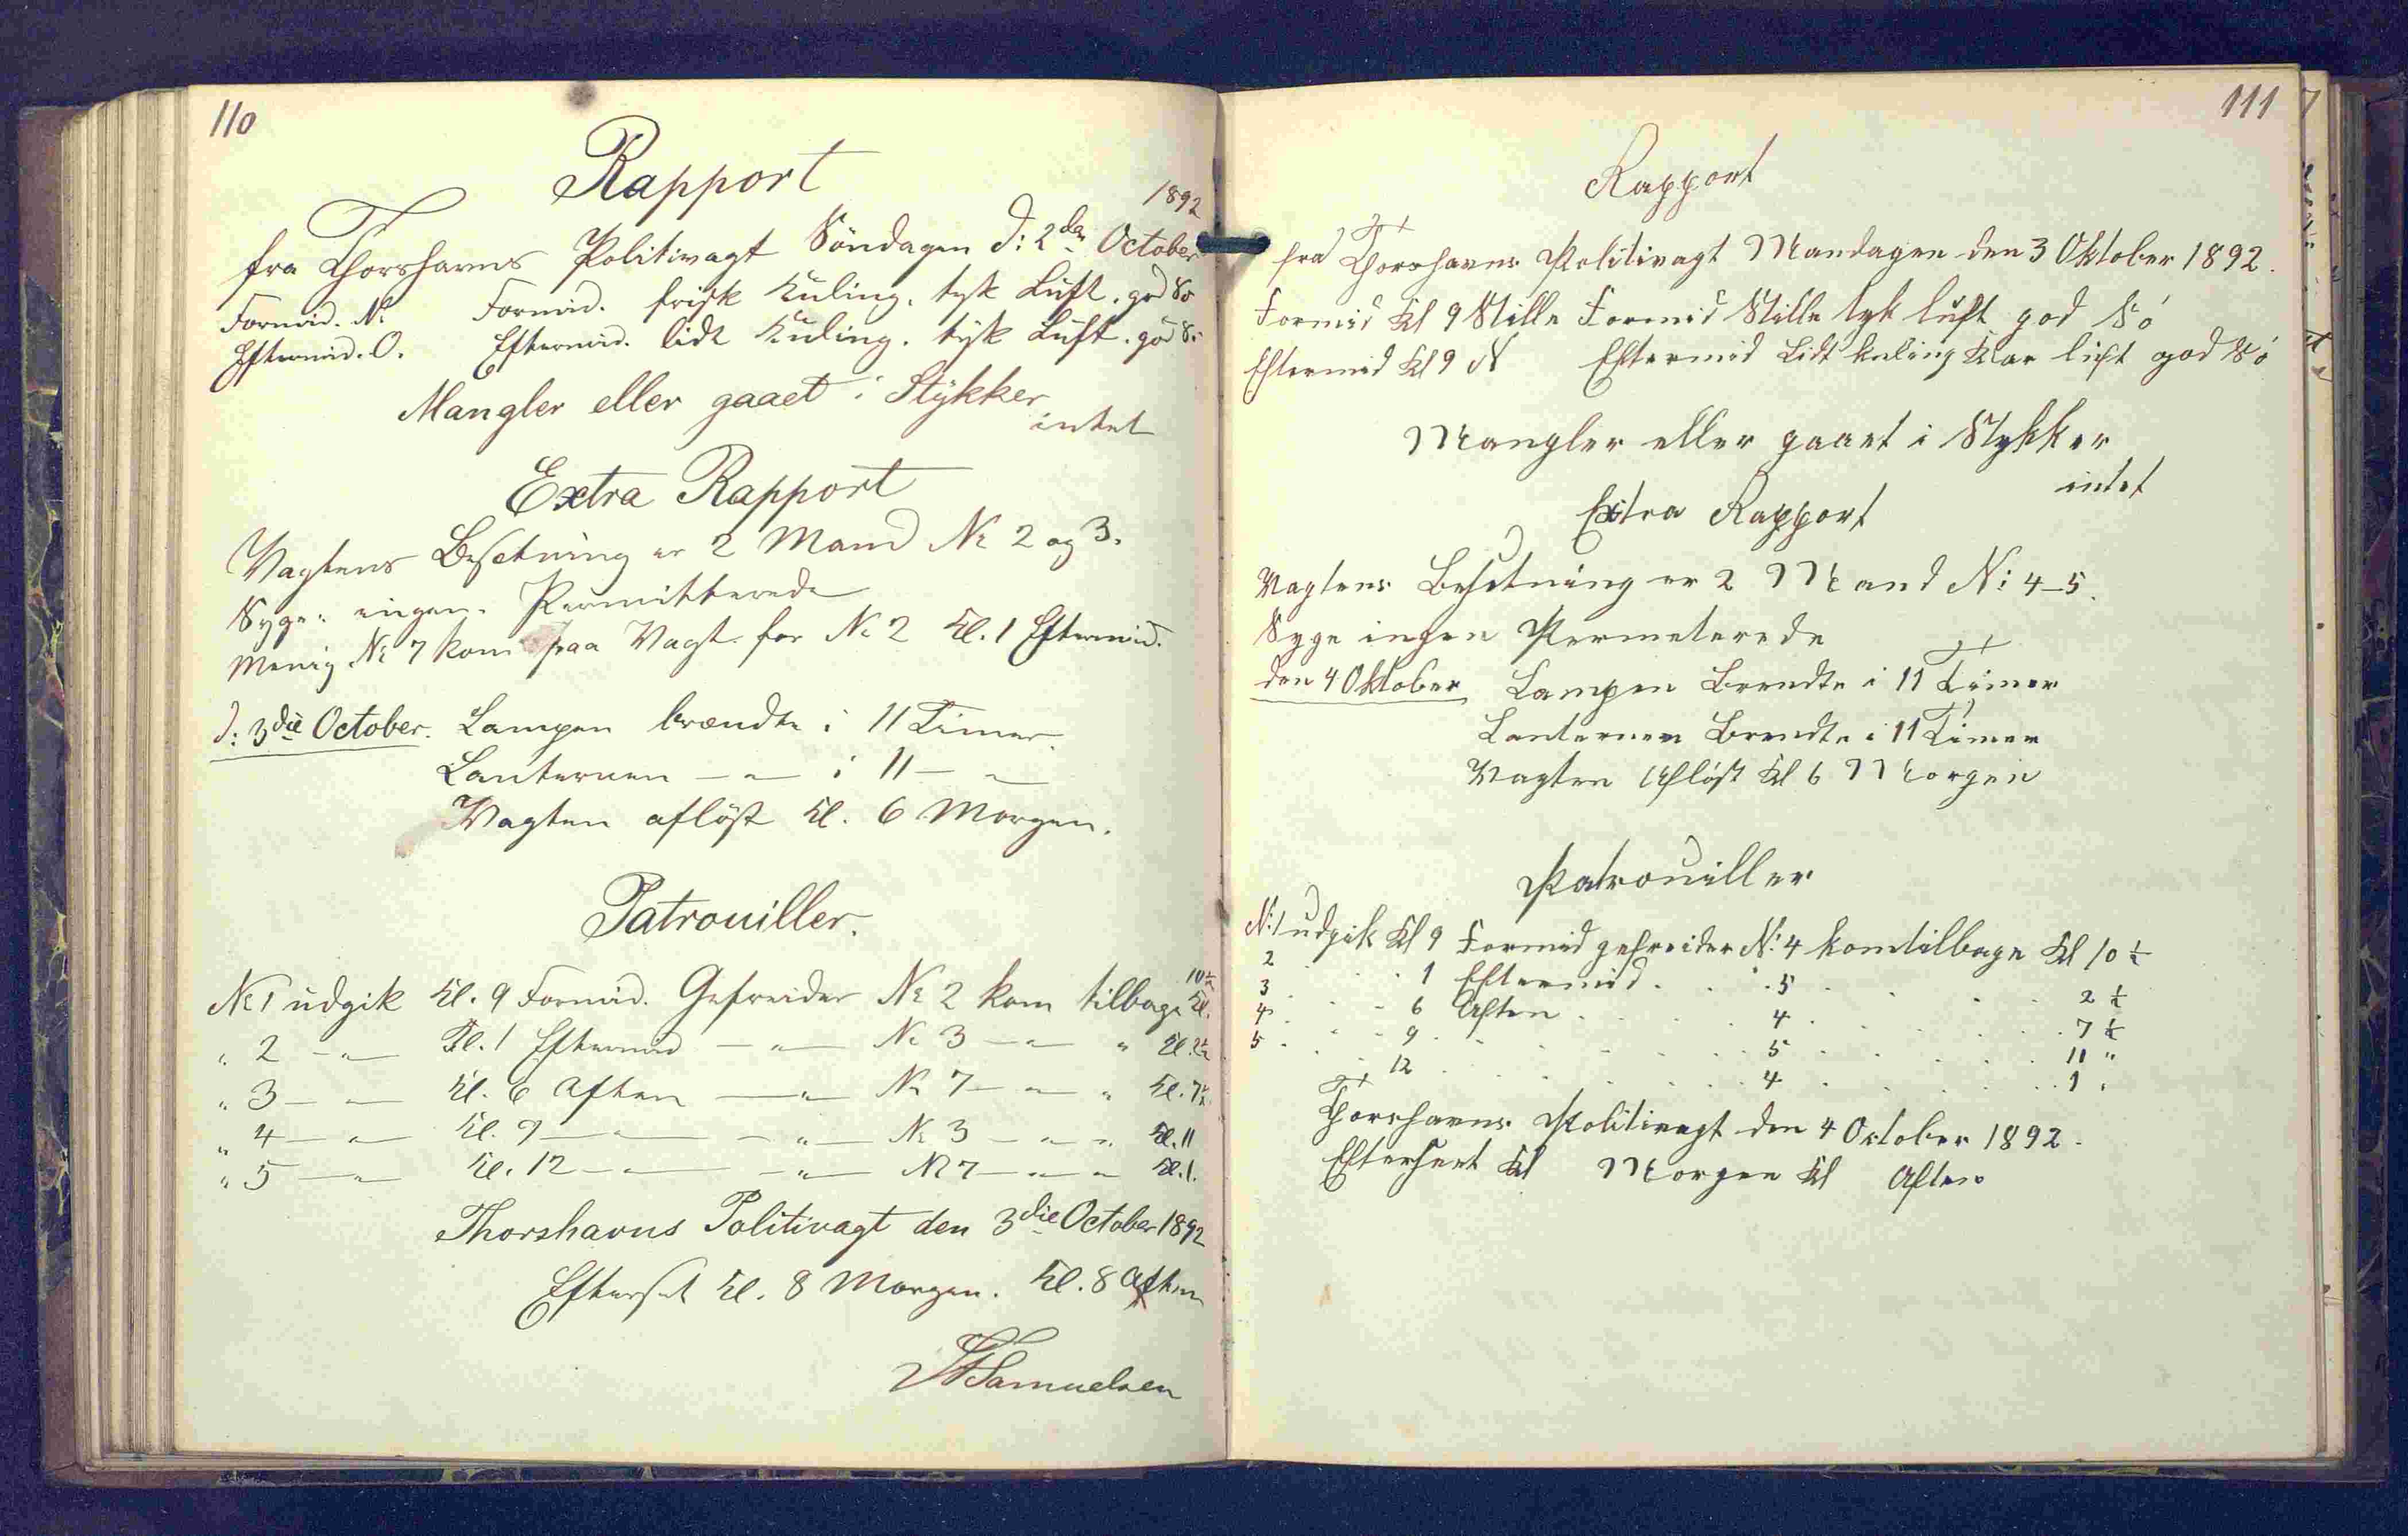 110
Rapport
1892
fra Thorshavns Politivagt Söndagen d: 2den October
Formid. N: Formid. frisk Kuling. tyk Luft. god Sö
Eftermid. O. Eftermid. lidt Kuling. tyk Luft. god Sö
Mangler eller gaaet i Stykker
intet
Extra Rapport
Vagtens Besetning er 2 Mand No 2 og 3.
Syge: ingen. Permitterede
Menig No 7 kom paa Vagt for No 2 Kl. 1 Eftermid.
d: 3die October. Lampen brændte i 11 Timer.
Lanternen — " — i 11 — " —
Vagten aflöst Kl. 6 Morgen.
Patrouiller.
No 1 udgik Kl. 9 Formid. Gefreider No 2 kom tilbage Kl. 10½
" 2 — " — Kl. 1 Eftermid — " — No 3 — " — " Kl. 2½
" 3 — " — Kl. 6 Aften — " — No 7 — " — " Kl. 7½
" 4 — " — Kl. 9 — " — — " — No 3 — " — " Kl. 11
" 5 — " — Kl. 12 — " — — " — No 7 — " — " Kl. 1.
Thorshavns Politivagt den 3die October 1892
Efterset Kl. 8 Morgen. Kl. 8 Aften
Samuelsen
111
Rapport
fra Thorshavns Politivagt Mandagen den 3 Oktober 1892.
Formid Kl 9 Stille Formid Stille tyk luft god Sö
Eftermid Kl 9 N Eftermid Lidt kuling Klar luft god Sö
Mangler eller gaaet i Stykker
intet
Extra Rapport
Vagtens Besetning er 2 Mand N: 4-5.
Syge ingen Permeterede
den 4 Oktober Lampen Brendte i 11 Timer
Lanternen Brendte i 11 Timer
Vagten Aflöst Kl 6 Morgen
Patrouiller
N: 1 udgik Kl 9 Formid gefreider N: 4 kom tilbage Kl 10 ½
2 . . . 1 Eftermid . . . 5 . . . 2 ½
3 . . . 6 Aften . . . 4 . . . 7 ½
4 . . . 9 . . . 5 . . . 11 "
5 . . . 12 . . . 4 . . . 1 .
Thorshavns Politivagt den 4 October 1892.
Efterseet Kl Morgen Kl Aften